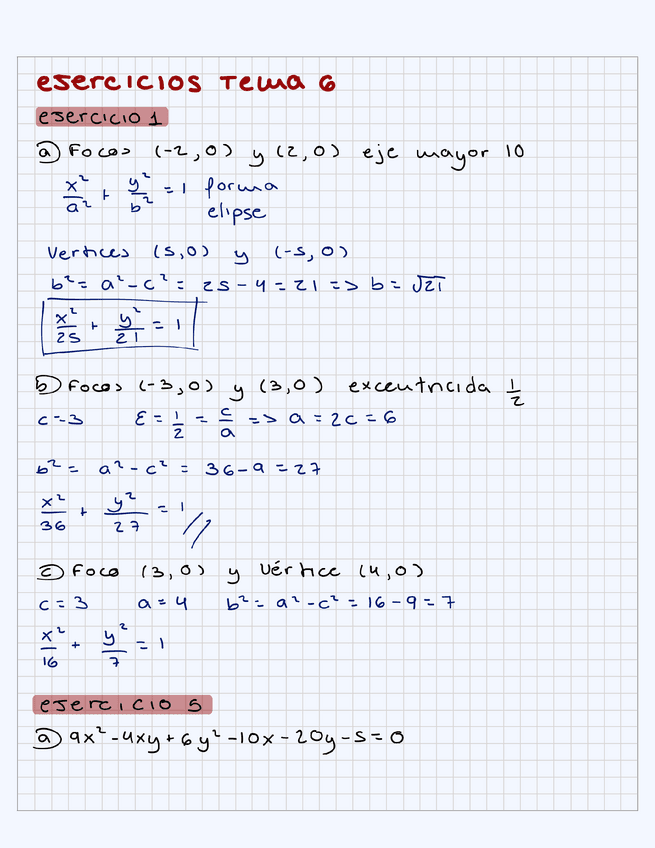 ejercicios Tema 6
ejercicio 1
a) Focos (-2,0) y (2,0) eje mayor 10
x²/a² + y²/b² = 1 forma
elipse
Vertices (5,0) y (-5,0)
b² = a² - c² = 25 - 4 = 21 => b = √21
x²/25 + y²/21 = 1
b) Focos (-3,0) y (3,0) excentricida 1/2
c=3 ε = 1/2 = c/a => a = 2c = 6
b² = a² - c² = 36 - 9 = 27
x²/36 + y²/27 = 1 //
c) Foco (3,0) y Vértice (4,0)
c = 3 a = 4 b² = a² - c² = 16 - 9 = 7
x²/16 + y²/7 = 1
ejercicio 5
a) 9x² - 4xy + 6y² - 10x - 20y - 5 = 0